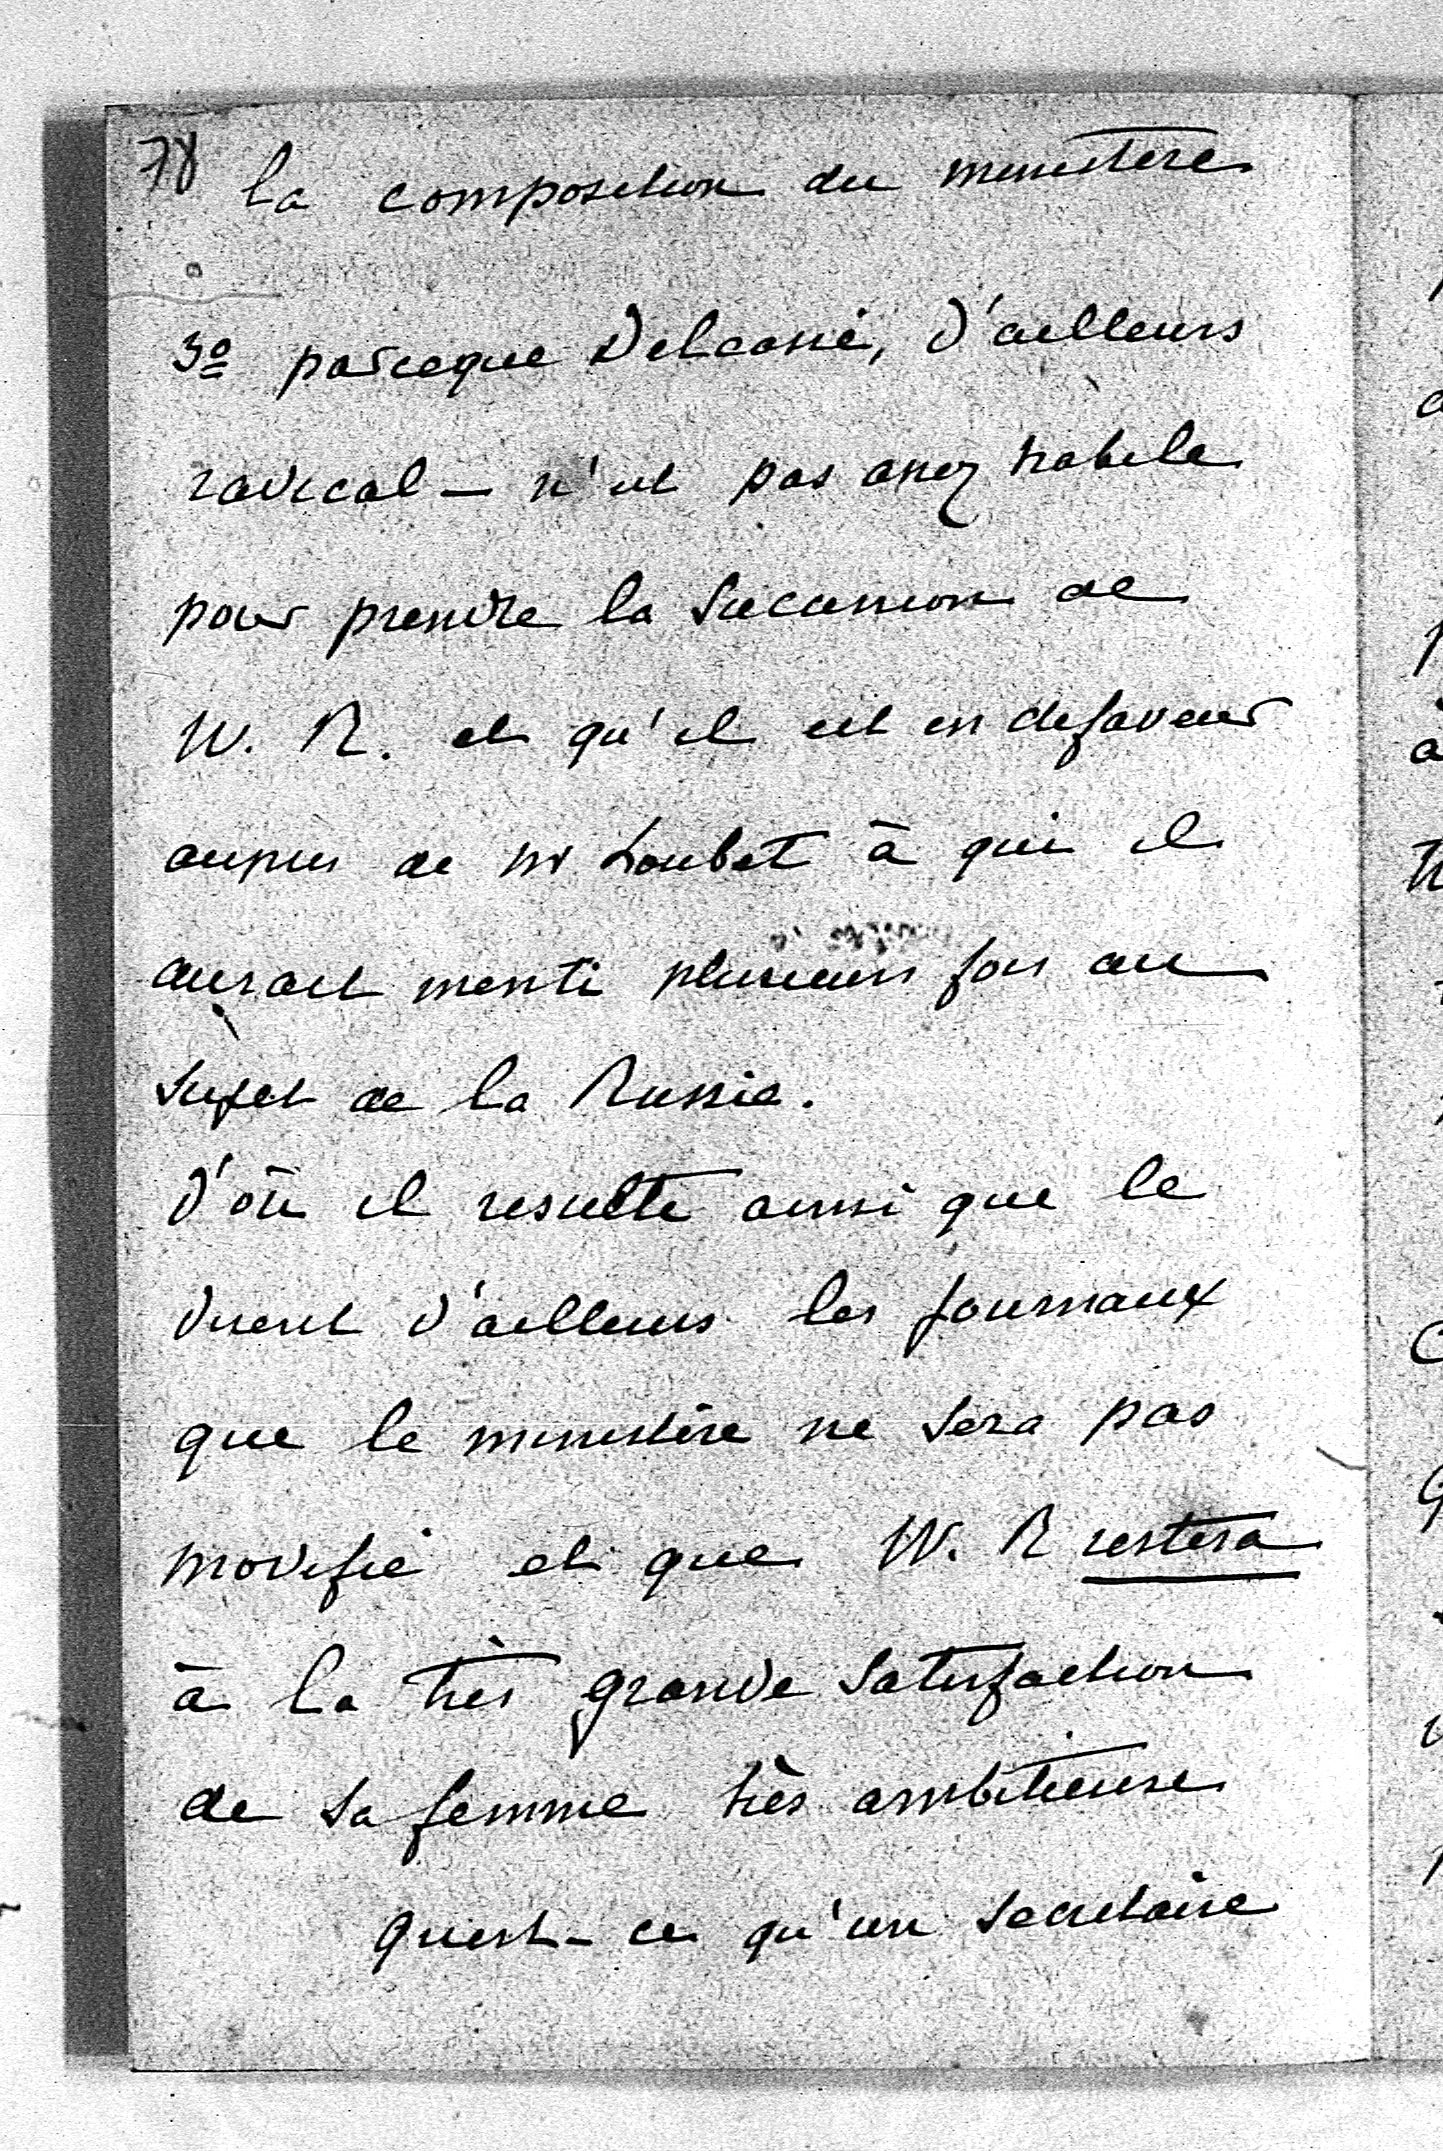 78
la composition du ministère
3º parceque Delcassé, d'ailleurs
radical — n'est pas assez habile
pour prendre la succession de
W. R. et qu'il est en defaveur
auprès de Mr Loubet à qui il
aurait menti plusieurs fois au
sujet de la Russie.
D'où il resulte ainsi que le
disent d'ailleurs les journaux
que le ministère ne sera pas
modifié et que W. R restera
à la très grande satisfaction
de sa femme très ambitieuse
Quest-ce qu'un secretaire